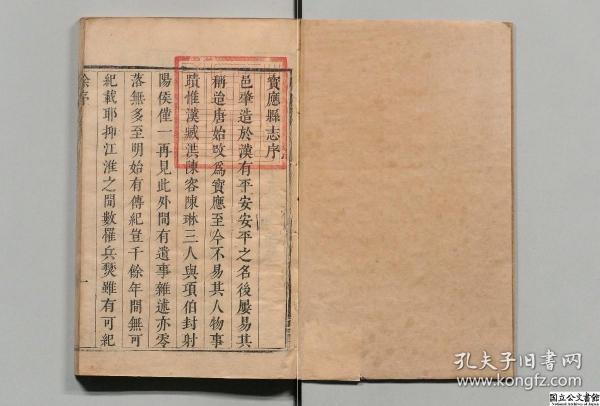 寶應縣志序
邑肇造於漢有平安安平之名後屢易其
稱迨唐始攺爲寶應至今不易其人物事
蹟惟漢臧洪陳容陳琳三人與項伯封射
陽侯僅一再見此外間有遺事雜述亦零
落無多至明始有傳紀豈千餘年間無可
紀載耶抑江淮之間數罹兵燹雖有可紀
徐序
一
孔夫子旧书网
www.kongfz.com
国立公文書館
National Archives of Japan